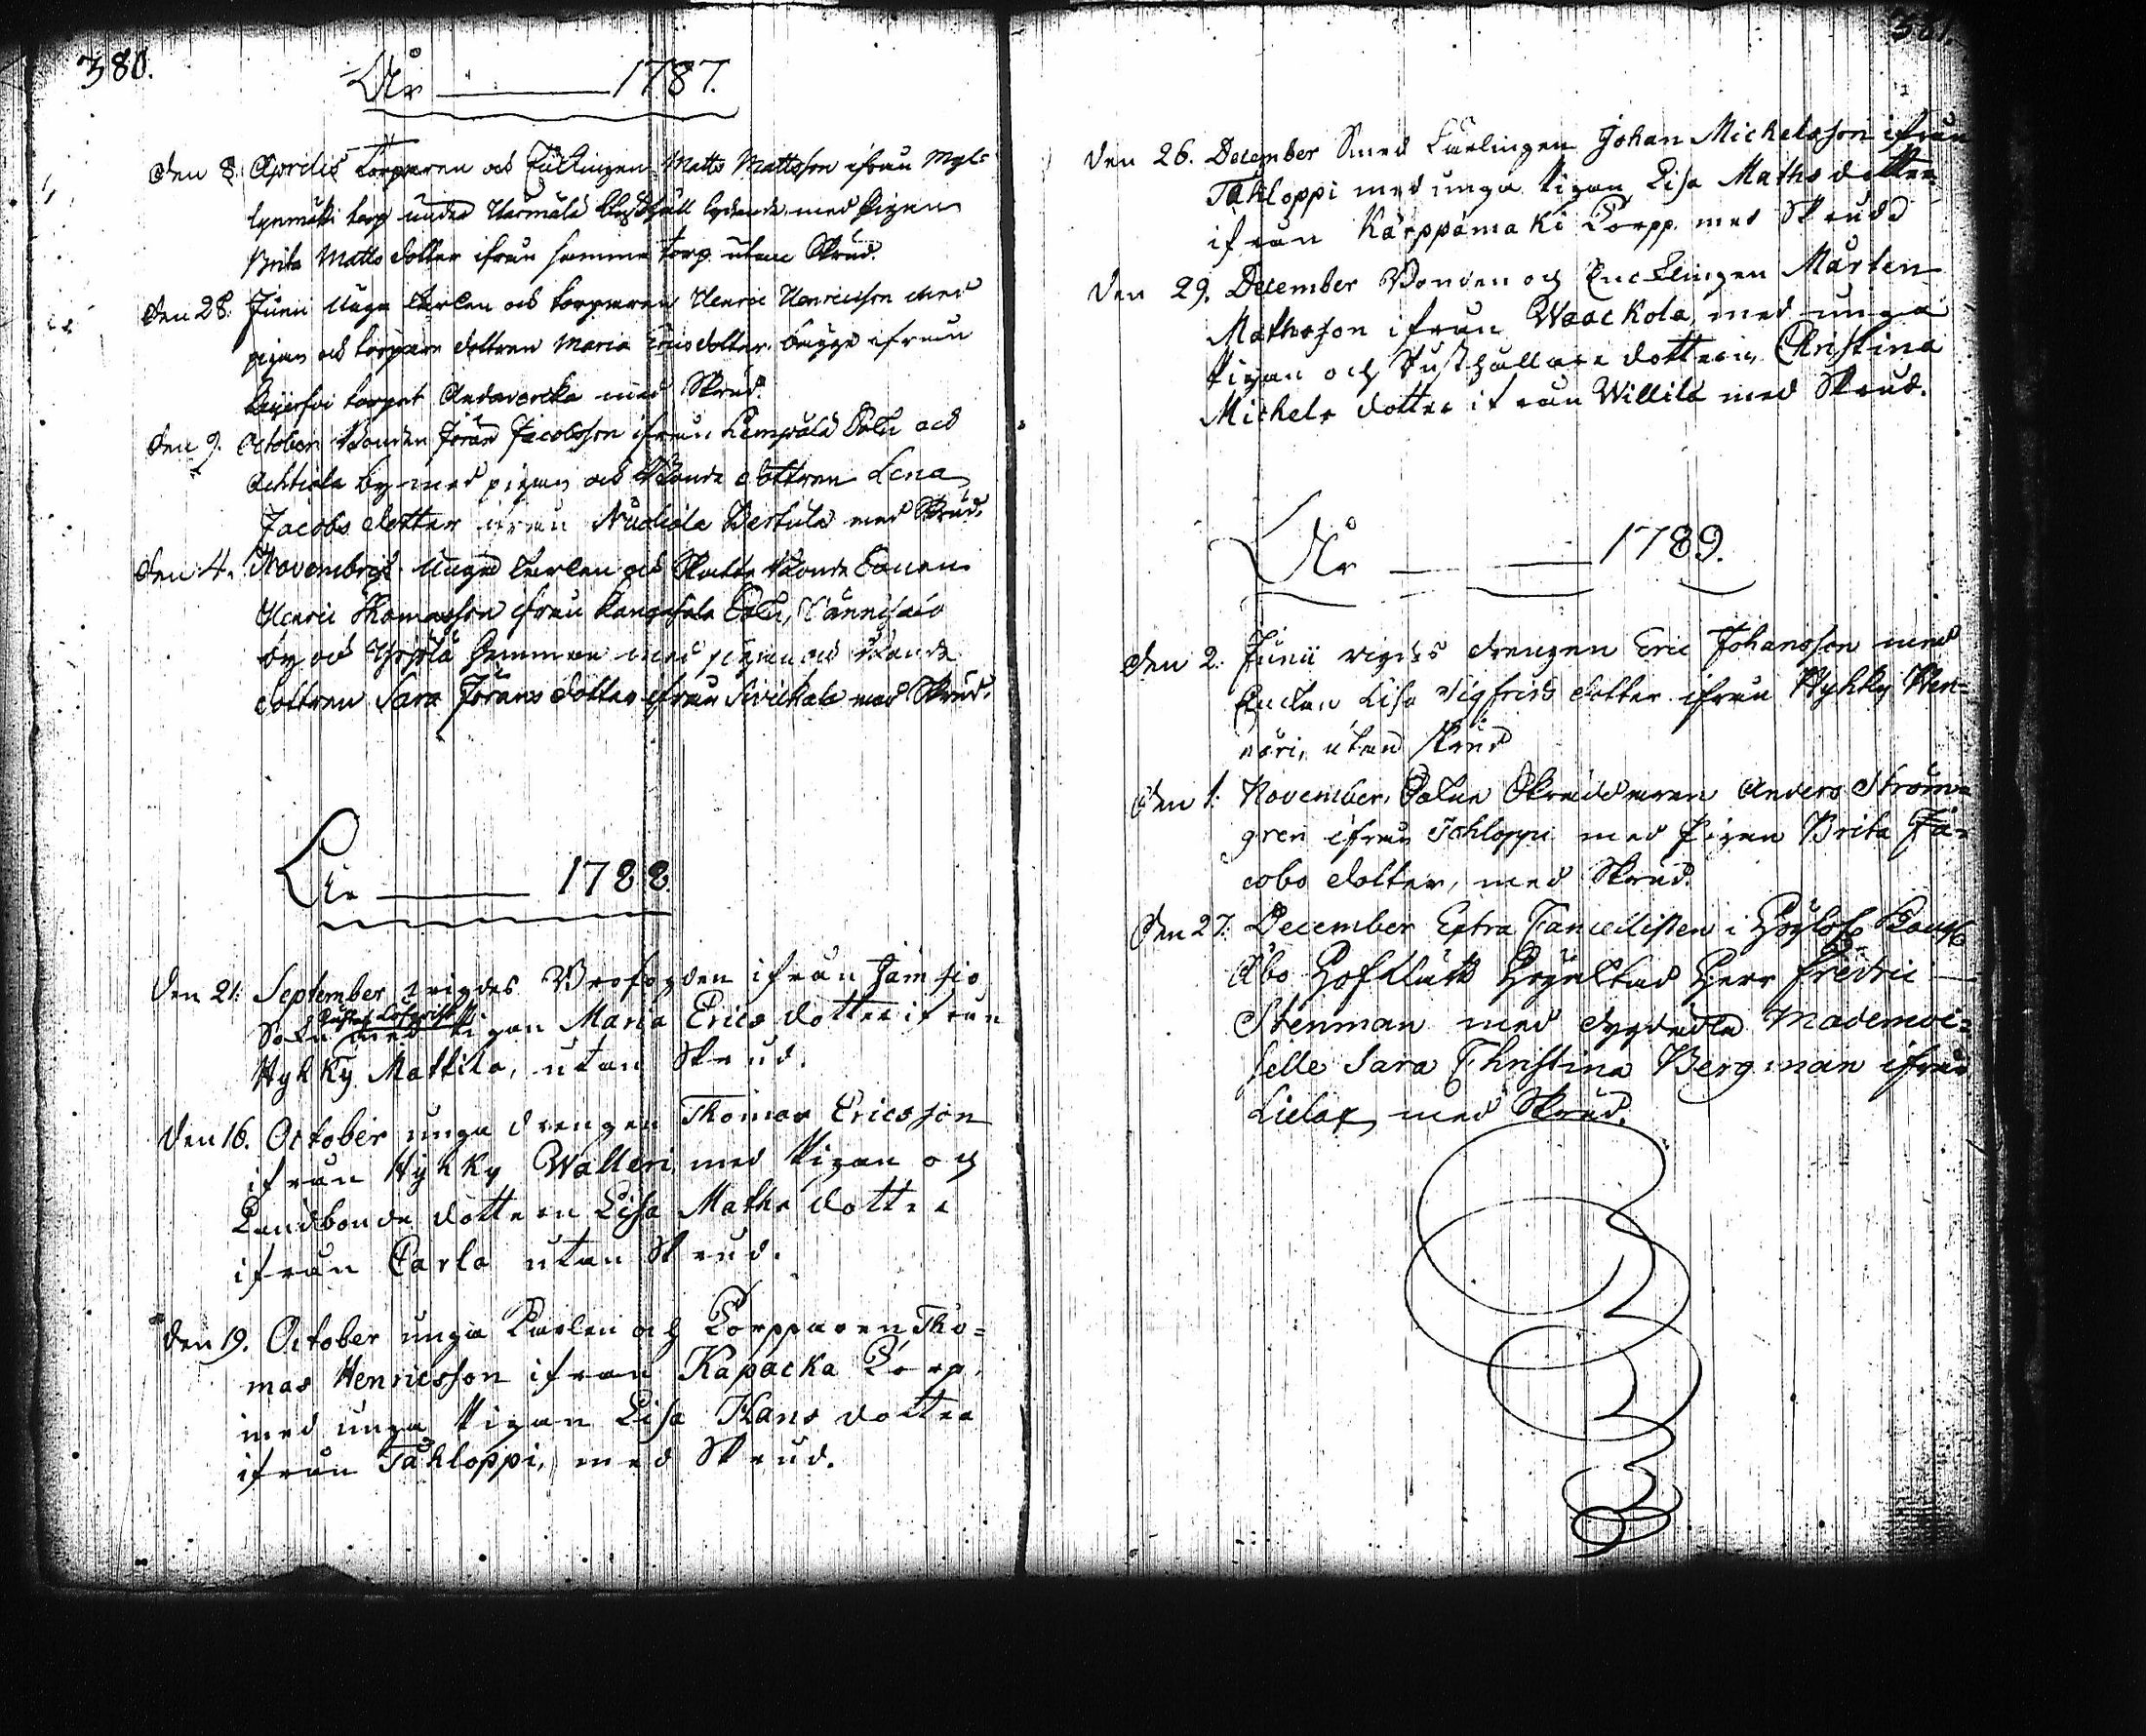 380.
År 1787.
Den 8. Aprilis Torparen och Enklingen Matts Mattsson ifrån Myl=
lynmäki torp under Härmälä lydande med Pigan
Brita Matts dotter ifrån samma torp utan Skrud.
Den 28. Junii Unga Karlen och torparen Henric Henricsson med
pigan och torpare dottren Maria Erics dotter bägge ifrån
torpet med Skrud.
Den 9. October Bonden Jöran Jacobsson ifrån Lempälä Sokn och
Achtiala by med pigan och Bonde dottren Lena
Jacobs dotter ifrån Nuoliala Bertula med Skrud.
Den 4. Novembris Unga Karlen och Skatte Bonde Sonen
Henric Thomasson ifrån Kangasala Sokn,
by och Yrjölä hemman med pigan och Bonde
dottren Sara Jörans dotter ifrån med Skrud.
År 1788
Den 21. September wigdes Brofogden ifrån Jämsio
Sokn Gustaf Löfqvist med Pigan Maria Erics dotter ifrån
Hykky Mattila, utan Skrud.
Den 16. October unga drengen Thomas Ericsson
ifrån Hykky Walleri med Pigan och
Landbonde dottren Lisa Maths dotter
ifrån Carla utan Skrud.
Den 19. October unga Karlen och Torpparen Tho=
mas Henricsson ifrån Kapacka Torp,
med unga Pigan Lisa Hans dotter
ifrån Tahloppi, med Skrud.
381.
Den 26. December Smed Karlingen Johan Michelsson ifrån
Tahloppi med unga Pigan Lisa Maths dotter
ifrån Kärppämäki Torpp. med Skrud
Den 29. December Bonden och Encklingen Mårten
Mathsson ifrån Waackola, med unga
Pigan och Rusthållare dottern, Christina
Michels dotter ifrån Willilä med Skrud.
År 1789.
Den 2. Junii vigdes drengen Eric Johansson med
Enckan Lisa Sigfrids dotter ifrån Hykky Hen=
neri, utan skrud
Den 1. November, Sokne Skräddaren Anders Ström=
gren ifrån Tahloppi med Pigan Brita Ja=
cobs dotter, med Skrud.
Den 27. December Extra Cancellisten i Höglofl. Kongl.
Åbo Hofrätt Högacktad Herr Fredric
Stenman med dygdädla Mademoi=
selle Sara Christina Bergman ifrån
Lielax med Skrud.